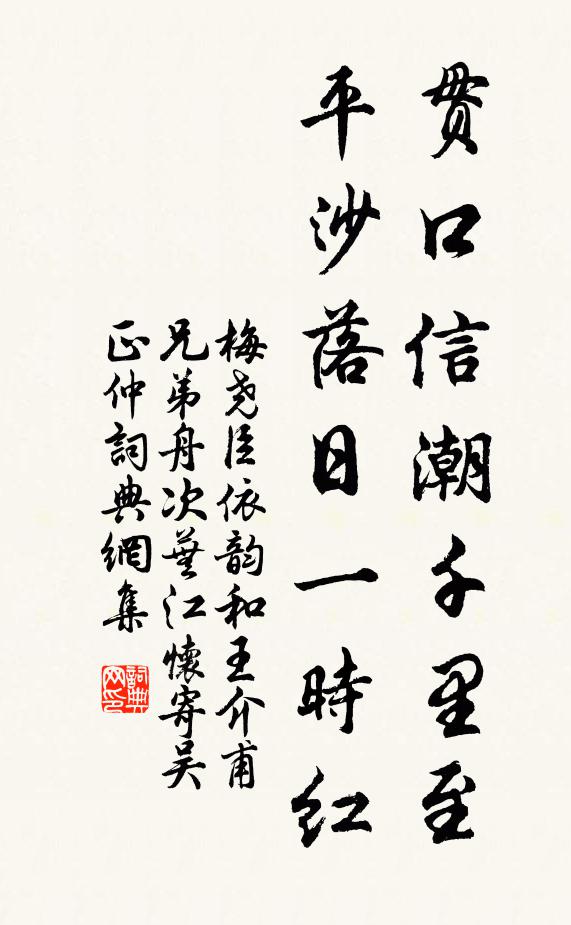 贯口信潮千里至
平沙落日一時红
梅尧臣依韵和王介甫
兄弟舟次蕪江懷寄吴
正仲詞典網集
詞典
网印